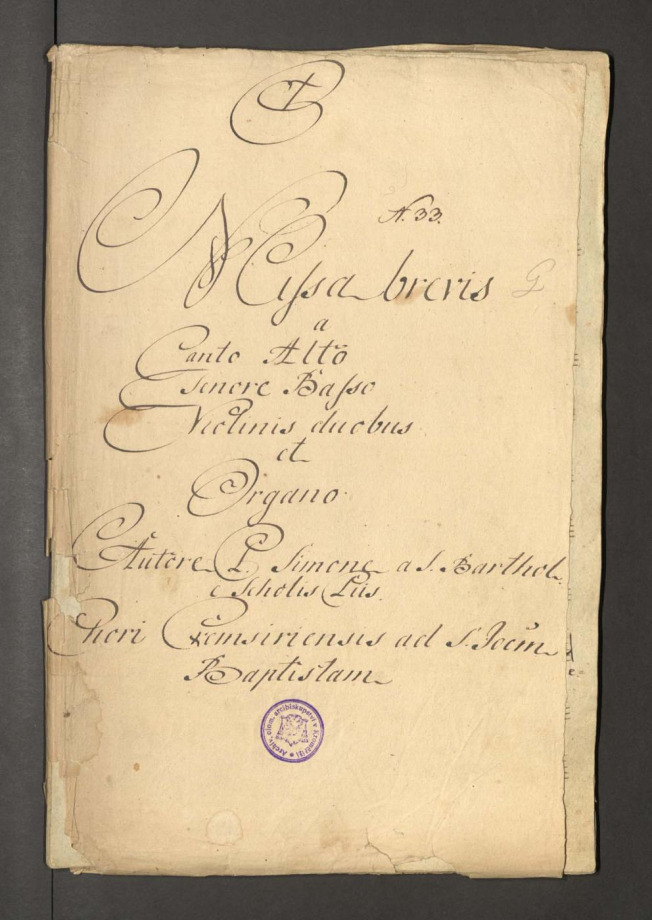 N. 33.
Missa brevis G
a
Canto Alto
Tenore Basso
Violinis duobus
et
Organo
Autore P. Simone a S. Barthol.
e Scholis Piis.
Chori Cremsiriensis ad S. Joem
Baptistam
Archiv olom. arcibiskupství v Kroměříži